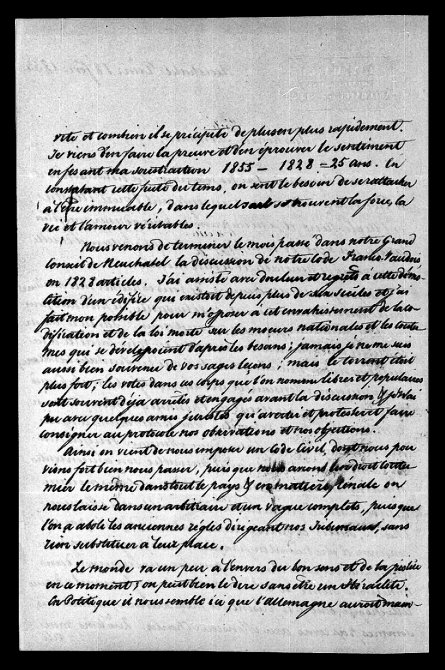 vite et combien il se précipite de plus en plus rapidement.
Je viens d'en faire la preuve et d'en éprouver le sentiment
en fesant ma soustraction 1853 – 1828 = 25 ans. En
constatant cette fuite du tems, on sent le besoin de se rattacher
à l'être immuable, dans lequel se trouvent la force, la
vie et l'amour véritables.
Nous venons de terminer le mois passé dans notre Grand
Conseil de Neuchatel la discussion de notre Code
en 1828 articles. J'ai assisté avec douleur et regrets à cette démo-
lition d'un édifice qui existait depuis plus de siècles et j'ai
fait mon possible pour m'opposer à cet envahissement de la Co-
dification et de la loi morte sur les moeurs nationales et les coutu-
mes qui se développoient d'après les besoins; jamais je ne me suis
aussi bien souvenu de vos sages leçons; mais le torrent était
plus fort; les votes dans ces corps que l'on nomme libres et populaires
sont souvent déjà arrêtés et engagés avant la discussion. J'ai
pu avec quelques amis juristes qu'avertir et protester et faire
consigner au protocole nos observations et nos objections.
Ainsi on vient de nous imposer un Code Civil, dont nous pou-
vions fort bien nous passer, puisque nous avons le droit coutu-
mier le même dans tout le pays & en matière Pénale on
nous laisse dans un arbitraire et un vague complets, puisque
l'on a aboli les anciennes règles dirigeant nos Tribunaux, sans
rien substituer à leur place.
Le monde va un peu à l'envers du bon sens et de la justice
en ce moment; on peut bien le dire sans être un
En Politique il nous semble ici que l'allemagne auroit